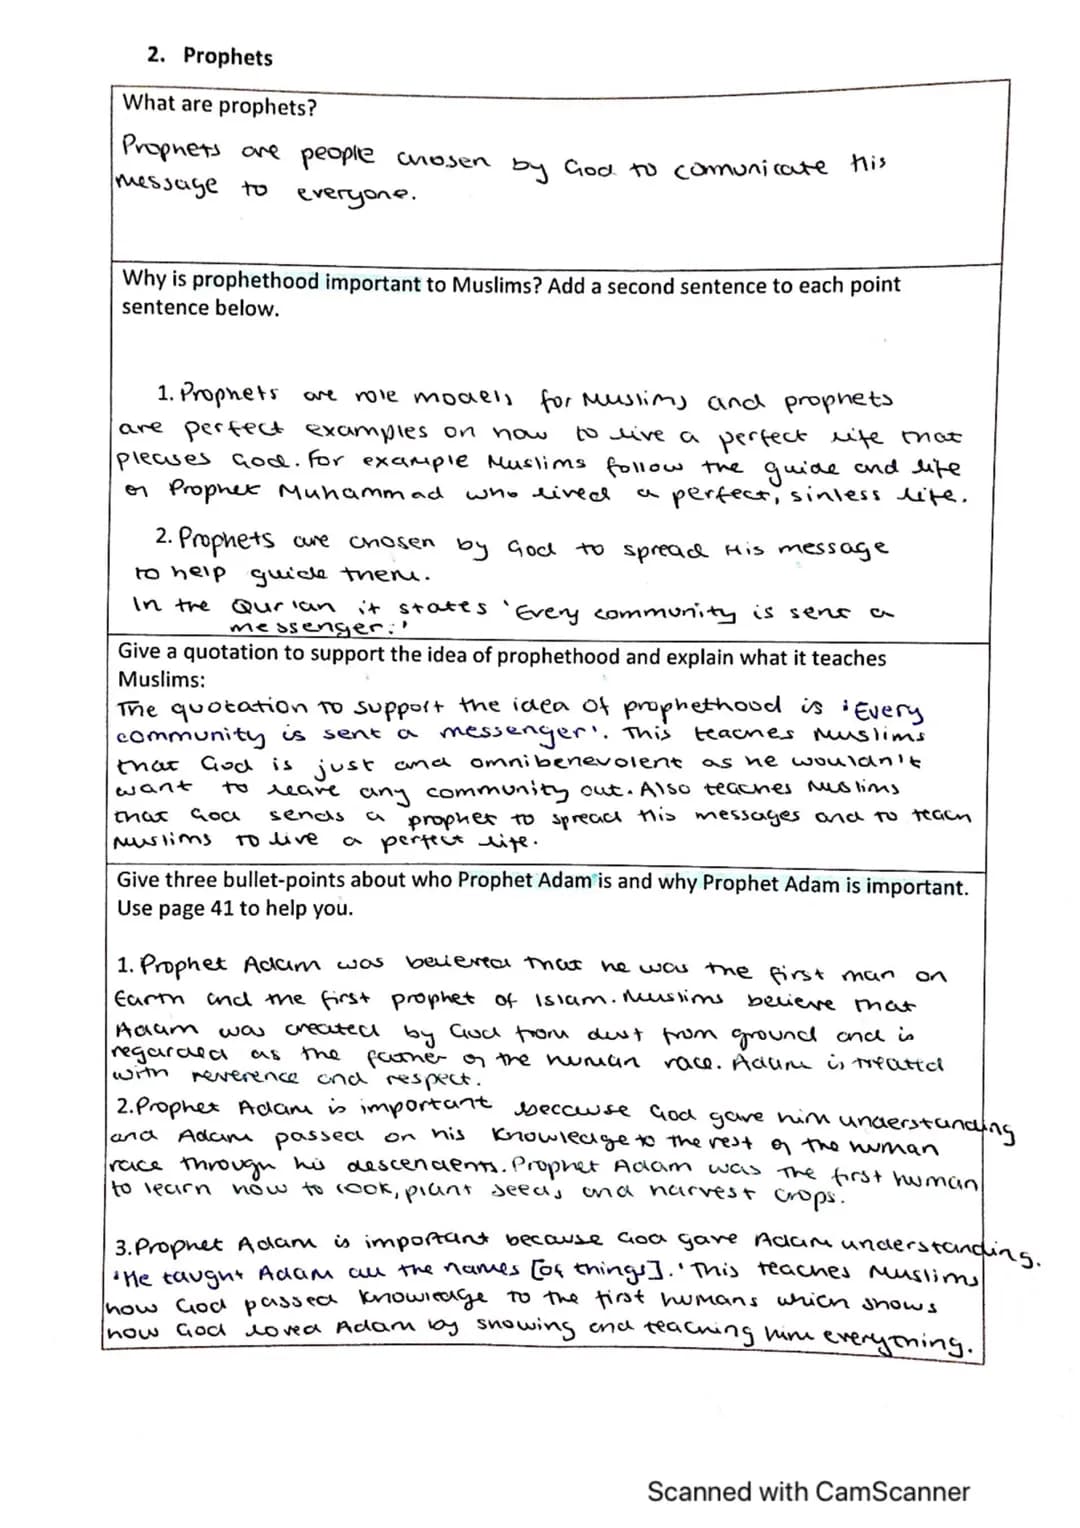 2. Prophets
What are prophets?
Prophets are people chosen by God to comunicate this
message to everyone.
Why is prophethood important to Muslims? Add a second sentence to each point
sentence below.
1. Prophets are role models for Muslims and prophets
are perfect examples on how to live a perfect life that
pleases God. For example Muslims follow the guide and life
of Prophet Muhammad who lived a perfect, sinless life.
2. Prophets are chosen by God to spread His message
to help guide them.
In the Qur'an it states 'Every community is sent a
messenger.'
Give a quotation to support the idea of prophethood and explain what it teaches
Muslims:
The quotation to support the idea of prophethood is 'Every
community is sent a messenger'. This teaches Muslims
that God is just and omnibenevolent as he wouldn't
want to leave any community out. Also teaches Muslims
that God sends a prophet to spread his messages and to teach
Muslims to live a perfect life.
Give three bullet-points about who Prophet Adam is and why Prophet Adam is important.
Use page 41 to help you.
1. Prophet Adam was believed that he was the first man on
Earth and the first prophet of Islam. Muslims believe that
Adam was created by God from dust from ground and is
regarded as the father of the human race. Adam is treated
with reverence and respect.
2. Prophet Adam is important because God gave him understanding
and Adam passed on his knowledge to the rest of the human
race through his descendents. Prophet Adam was the first human
to learn how to cook, plant seeds and harvest crops.
3. Prophet Adam is important because God gave Adam understanding.
'He taught Adam all the names [of things].' This teaches Muslims
how God passed knowledge to the first humans which shows
how God loved Adam by showing and teaching him everything.
Scanned with CamScanner